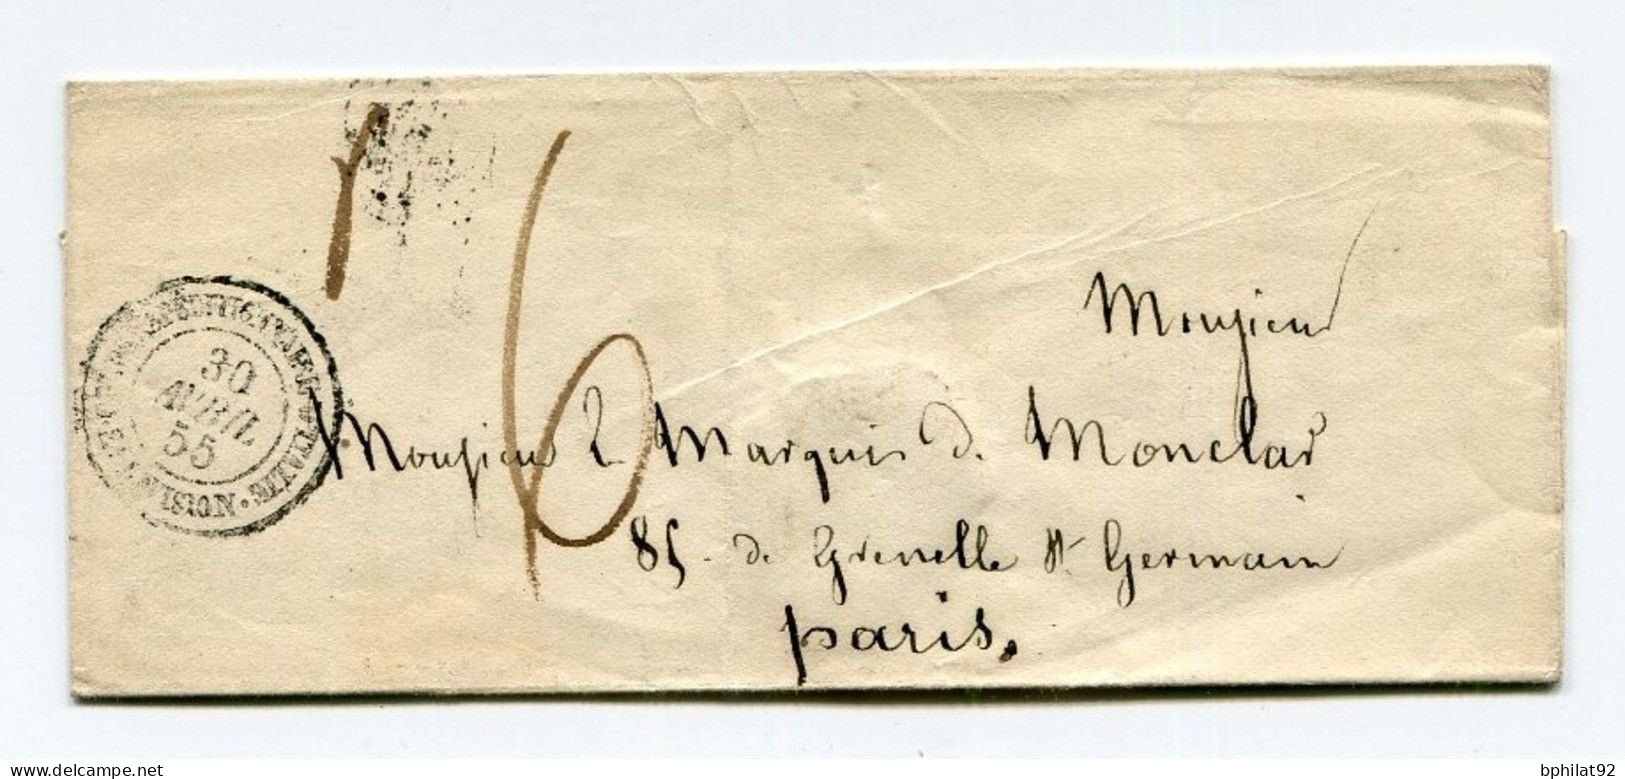 16
CORPS EXPEDITIONNAIRE D'ITALIE
30
AVRIL
55
DIVISION
Monsieur
Monsieur Le Marquis de Monclar
85. de Grenelle St Germain
paris.
delcampe.net
bphilat92